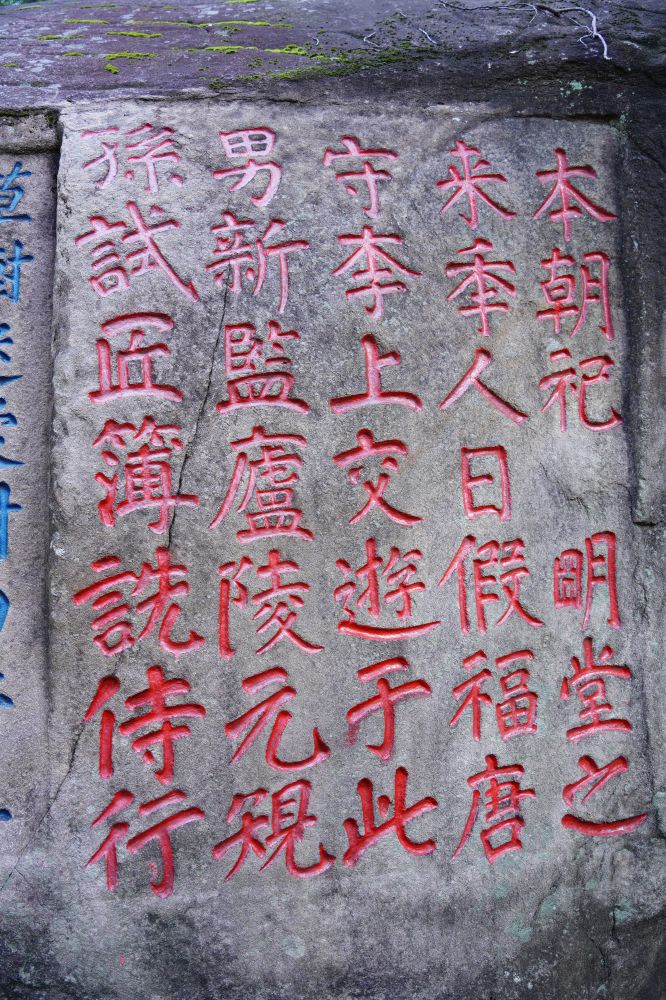 本朝祀 明堂之
来秊人日假福唐
守李上交遊于此
男新監廬陵元規
孫試匠簿詵侍行